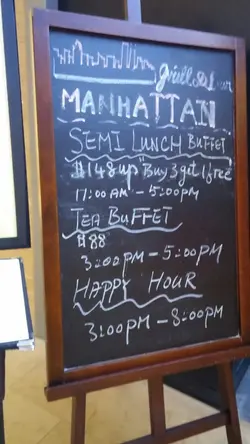 grill & bar
MANHATTAN
SEMI LUNCH BUFFET
$148up "Buy 3 get 1 free
11:00 AM - 5:00PM
TEA BUFFET
$88
3:00PM - 5:00PM
HAPPY HOUR
3:00PM - 8:00PM